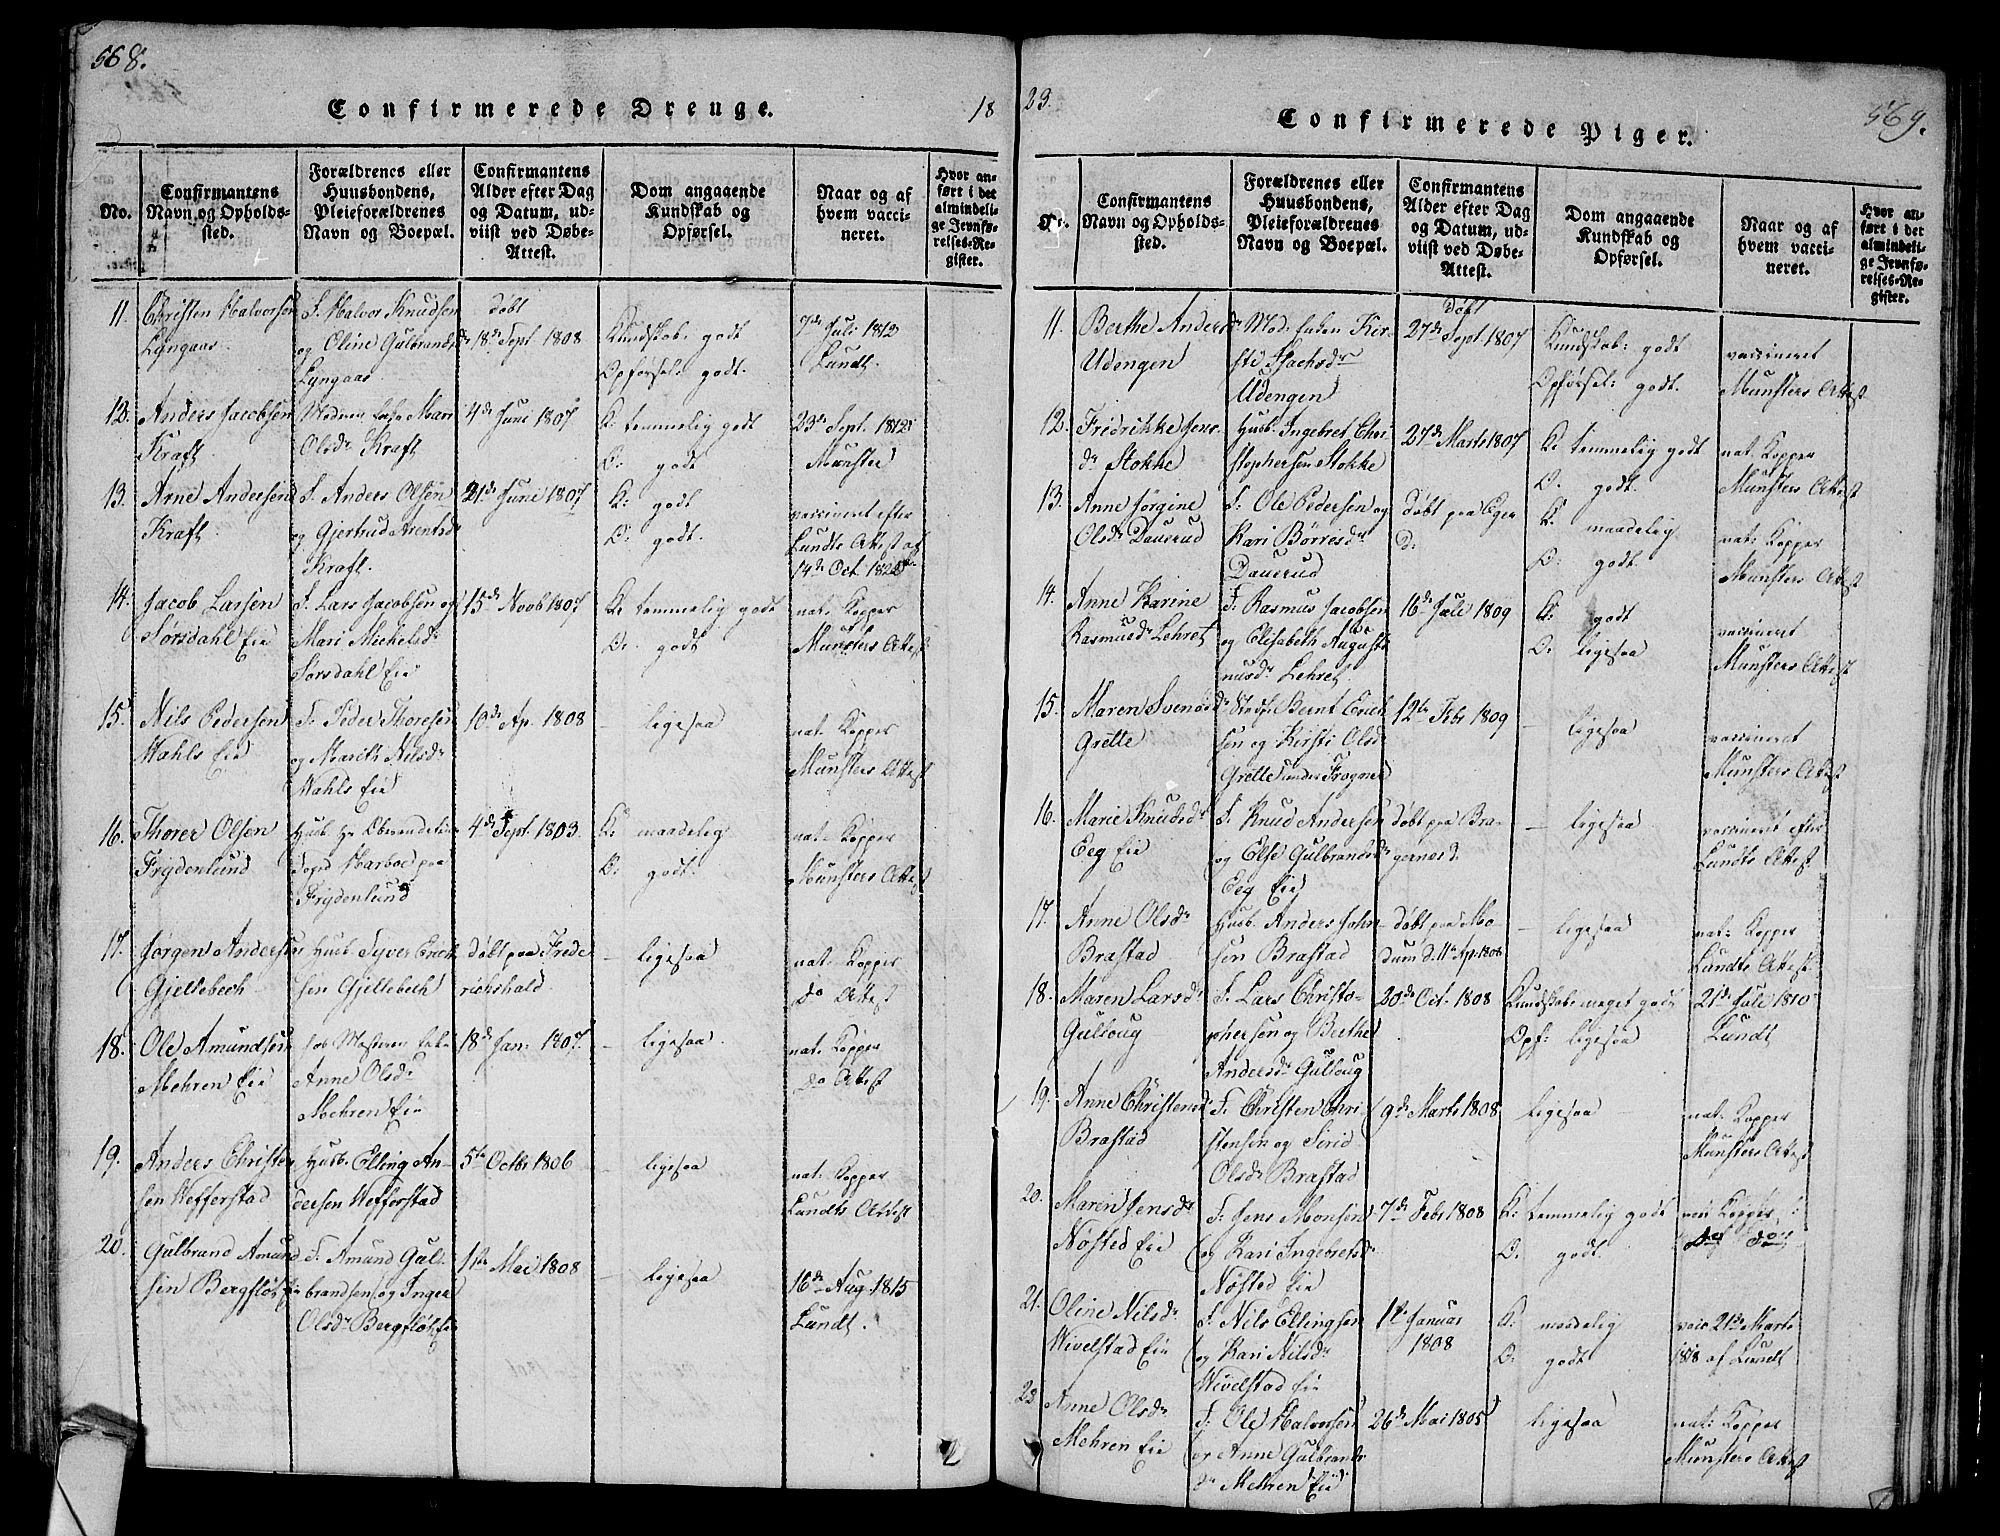 568.
Confirmerede Drenge.
18
No.
Confirmantens
Navn og Opholds-
sted.
Forældrenes eller
Huusbondens,
Pleieforældrenes
Navn og Boepæl.
Confirmantens
Alder efter Dag
og Datum, ud-
viist ved Døbe-
Attest.
Dom angaaende
Kundskab og
Opførsel.
Naar og af
hvem vacci-
neret.
Hvor an-
ført i det
almindeli-
ge Jevnfø-
relses-Re-
gister.
11.
Christen Halvorsen
Lyngaas
F. Halvor Knudsen
og Oline Gulbrands
Lyngaas
døbt
18de Sept 1808
Kundskab: godt
Opførsel: godt.
7de Juli 1812
Lundt.
12.
Anders Jacobsen
Kraft
Moderen Enke Mari
Olsdr Kraft
4de Juni 1807
K: temmelig godt
O: godt
23de Sept. 1812
Munster
13.
Arne Andersen
Kraft
F. Anders Olsen
og Gjertrud Arentsd
Kraft.
21de Juni 1807
K: godt
O: godt.
vaccineret efter
Lundts Attest af
14de Oct. 182
14.
Jacob Larsen
Sørsdahl Eie
F. Lars Jacobsen og
Mari Michelsdr
Sørsdahl Eie
15de Novb 1807
K: temmelig godt
O: godt
nat: Kopper
Munsters Attest
15.
Nils Pedersen
Wahls Eie
F: Peder Thoresen
og Marith Nilsdr
Wahls Eie
10de Ap. 1808
– ligesaa
nat: Kopper
Munsters Attest
16.
Thorer Olsen
Frydenlund
Husb Hr
Foged Harboe paa
Frydenlund
4de Sept. 1803.
K: maadelig
O: godt.
nat: Kopper
Munsters Attest
17.
Jørgen Andersen
Gjellebech
Husb Syver Erich
sen Gjellebech
døbt paa Frede
richshald.
– ligesaa
nat: Kopper
do Attest
18.
Ole Amundsen
Mehren Eie
Moderen Enke
Anne Olsdr
Mehren Eie
18de Jan. 1807.
– ligesaa
nat: Kopper
do Attest
19.
Anders Christen
sen Wefferstad
Husb. Elling An-
dersen Wefferstad
5te Octbr 1806
– ligesaa
nat: Kopper
Lundts Attest
20.
Gulbrand Amund
sen Bergfløt Eie
F. Amund Gul-
brandsen og Inger
Olsdr Bergfløt Eie
1ste Mai 1808
– ligesaa
16de Aug. 1815
Lundt.
23.
569.
Confirmerede Piger.
No.
Confirmantens
Navn og Opholds-
sted.
Forældrenes eller
Huusbondens,
Pleieforældrenes
Navn og Boepæl.
Confirmantens
Alder efter Dag
og Datum, ud-
viist ved Døbe-
Attest.
Dom angaaende
Kundskab og
Opførsel.
Naar og af
hvem vacci-
neret.
Hvor an-
ført i det
almindeli-
ge Jevnfø-
relses-Re-
gister.
11.
Berthe Anders dr
Udengen
Mod: Enken Kir-
sti Isachsdr
Udengen
Døbt
27de Sept. 1807
Kundskab: godt
Opførsel: godt.
vaccineret
Munsters Attest
12.
Fridrikke Jens-
dr Stokke
Husb. Ingebret Chri
stophersen Stokke
27de Marts 1807
K: temmelig godt
O: godt.
nat: Kopper
Munsters Attest
13.
Anne Jørgine
Olsdr Dauerud
F: Ole Pedersen og
Kari Børresdr
Dauerud
døbt paa Eger
D:
K: maadelig
O: godt.
nat: Kopper
Munsters Attest
14.
Anne Karine
Rasmusdr Lehret
F: Rasmus Jacobsen
og Elisabeth Augusti
nusdr Lehret.
16de Juli 1809
K: godt
O: ligesaa
vaccineret
Munsters Attest
15.
Maren Svensdr
Grette
Stedf. Bernt Erich
sen og Kirsti Olsd
Grette under Frogner
12te Febr 1809
– ligesaa
vaccineret
Munsters Attest
16.
Marie Knudsdr
Eeg Eie
F. Knud Andersen
og Else Gulbrandsdr
Eeg Eie
døbt paa Bra-
gernes d.
– ligesaa
vaccineret efter
Lundts Attest
17.
Anne Olsdr
Brastad
Husb. Anders John-
sen Brastad
døbt paa Mo-
dum d. 11te Ap. 1808
– ligesaa
nat: Kopper
Lundts Attest.
18.
Maren Larsdr
Guldoug
F. Lars Christo-
phersen og Berthe
Andersdr Guldoug
20de Oct. 1808
Kundskab: meget godt
Opf: ligesaa
21de Juli 1810
Lundt
19.
Anne Christensdr
Brastad
F. Christen Chri-
stensen og Siri
Olsdr Brastad
9de Marts 1808
ligesaa
nat: Kopper
Munsters Attest
20.
Maren Jensdr
Nøsted Eie
F. Jens Monsen
og Kari Ingebretsdr
Nøsted Eie
7de Febr 1808
K: temmelig godt
O: godt
Kopper
21.
Oline Nilsdr
Wivelstad Eie
F. Nils Ellingsen
og Kari Nilsdr
Wivelstad Eie
1te Januar
1808
K: maadelig
O: godt
vacc. 21de Marts
1818 af Lundt
22
Anne Olsdr
Mehren Eie
F: Ole Halvorsen
og Anne Gulbrands
dr Mehren Eie
26de Mai 1805
ligesaa
nat: Kopper
Munsters Attest